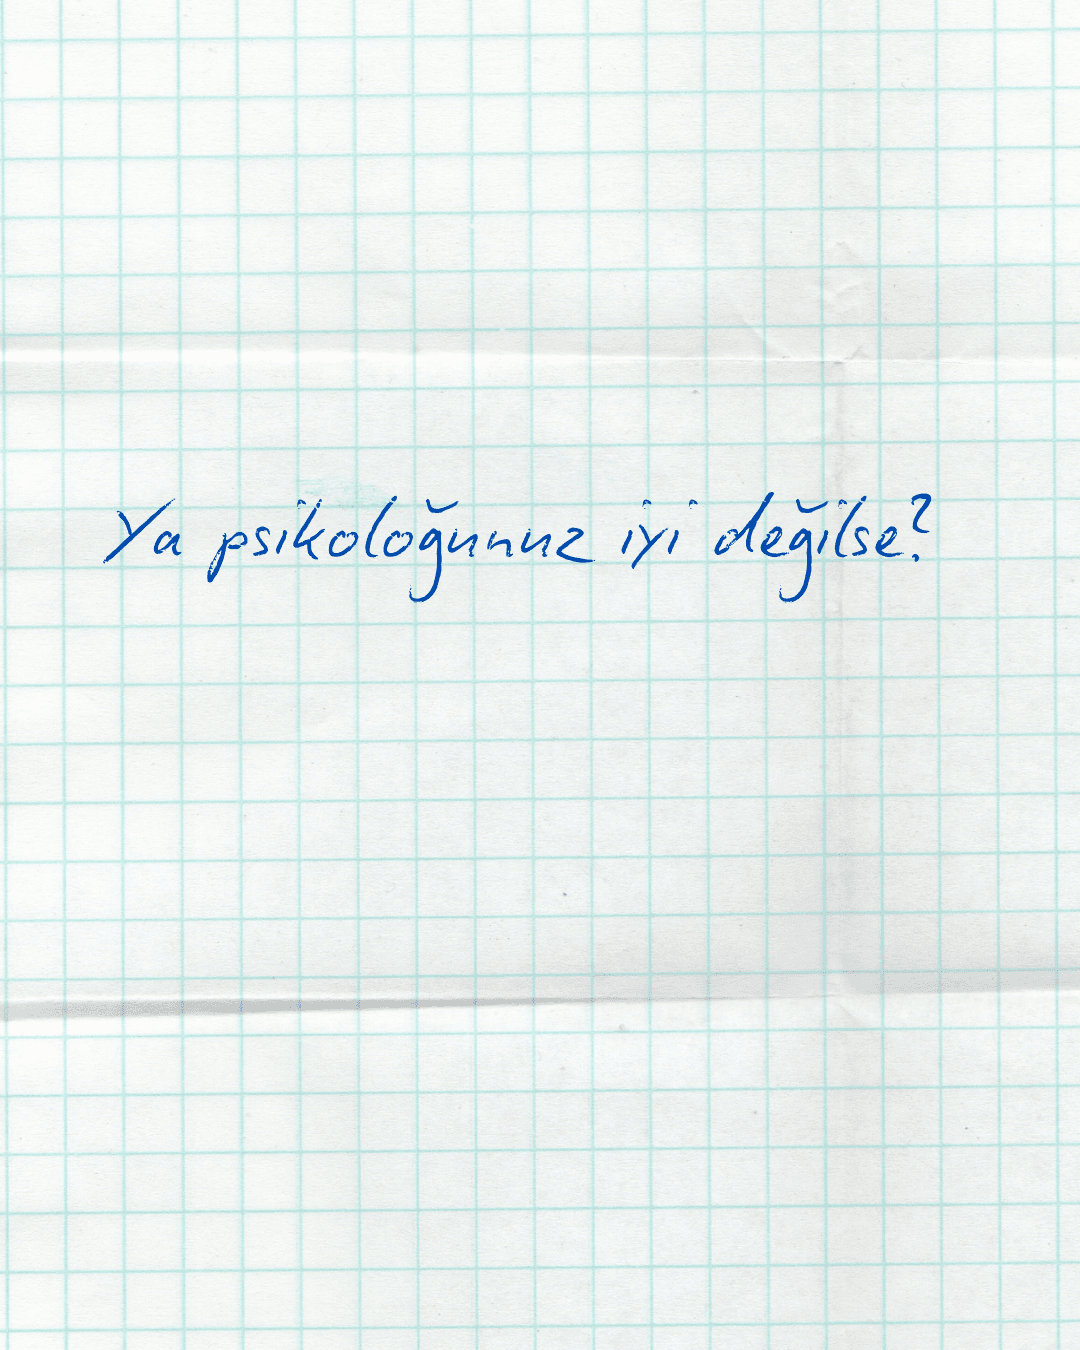 Ya psikoloğunuz iyi değilse?